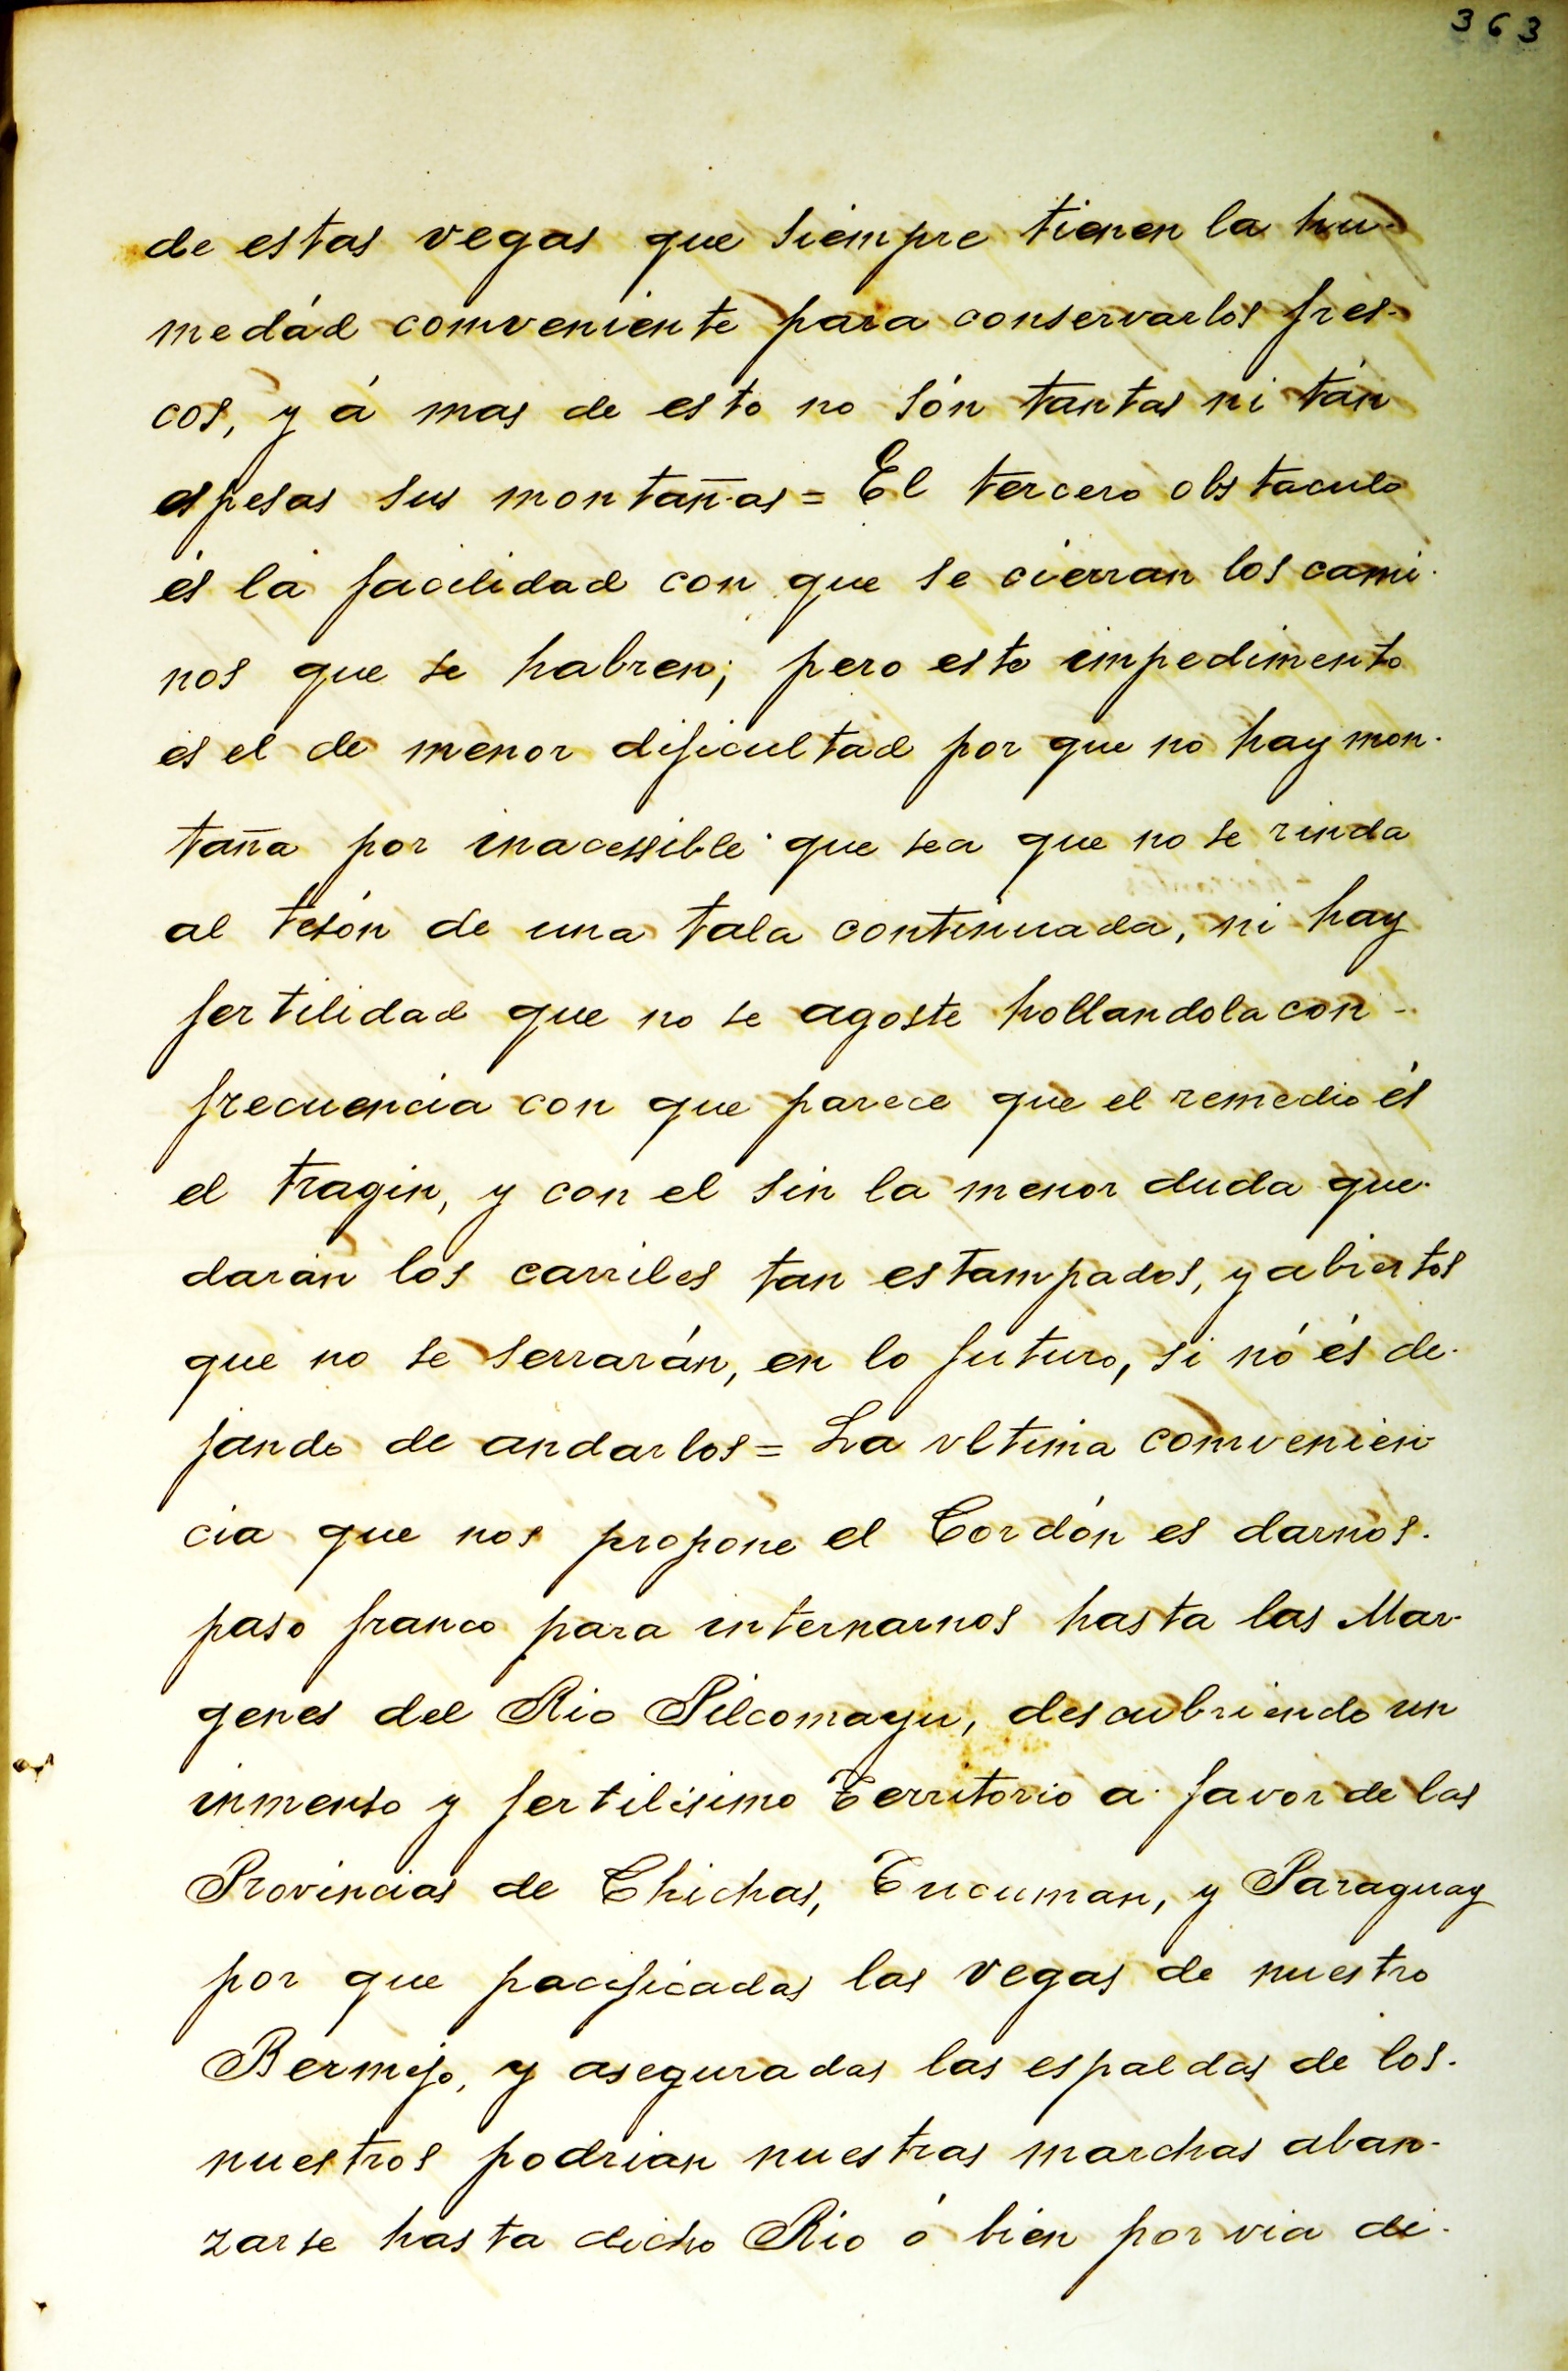 363
de estas vegas que siempre tienen la hu-
medád comveniente para conservarlos fres-
cos, y á mas de esto no són tantas ni tán
espesas sus montañas = El tercero obstaculo
és la facilidad con que se cierran los cami-
nos que se habren; pero este impedimento
es el de menor dificultad por que no hay mon-
taña por inacessible que sea que no se rinda
al tesón de una tala continuada, ni hay
fertilidad que no se agoste hollandola con-
frecuencia con que parece que el remedio és
el tragin, y con el sin la menor duda que-
darán los carriles tan estampados, y abiertos
que no se serrarán, en lo futuro, si nó és de-
jando de andarlos = La vltima comvenien-
cia que nos propone el Cordón es darnos.
paso franco para internarnos hasta las Mar-
genes del Rio Pilcomayu, descubriendo un
inmenso y fertilisimo Territorio a favor de las
Provincias de Chichas, Tucuman, y Paraguay
por que pacificadas las vegas de nuestro
Bermejo, y aseguradas las espaldas de los.
nuestros podrian nuestras marchas aban-
zarse hasta dicho Rio ó bien por via di-